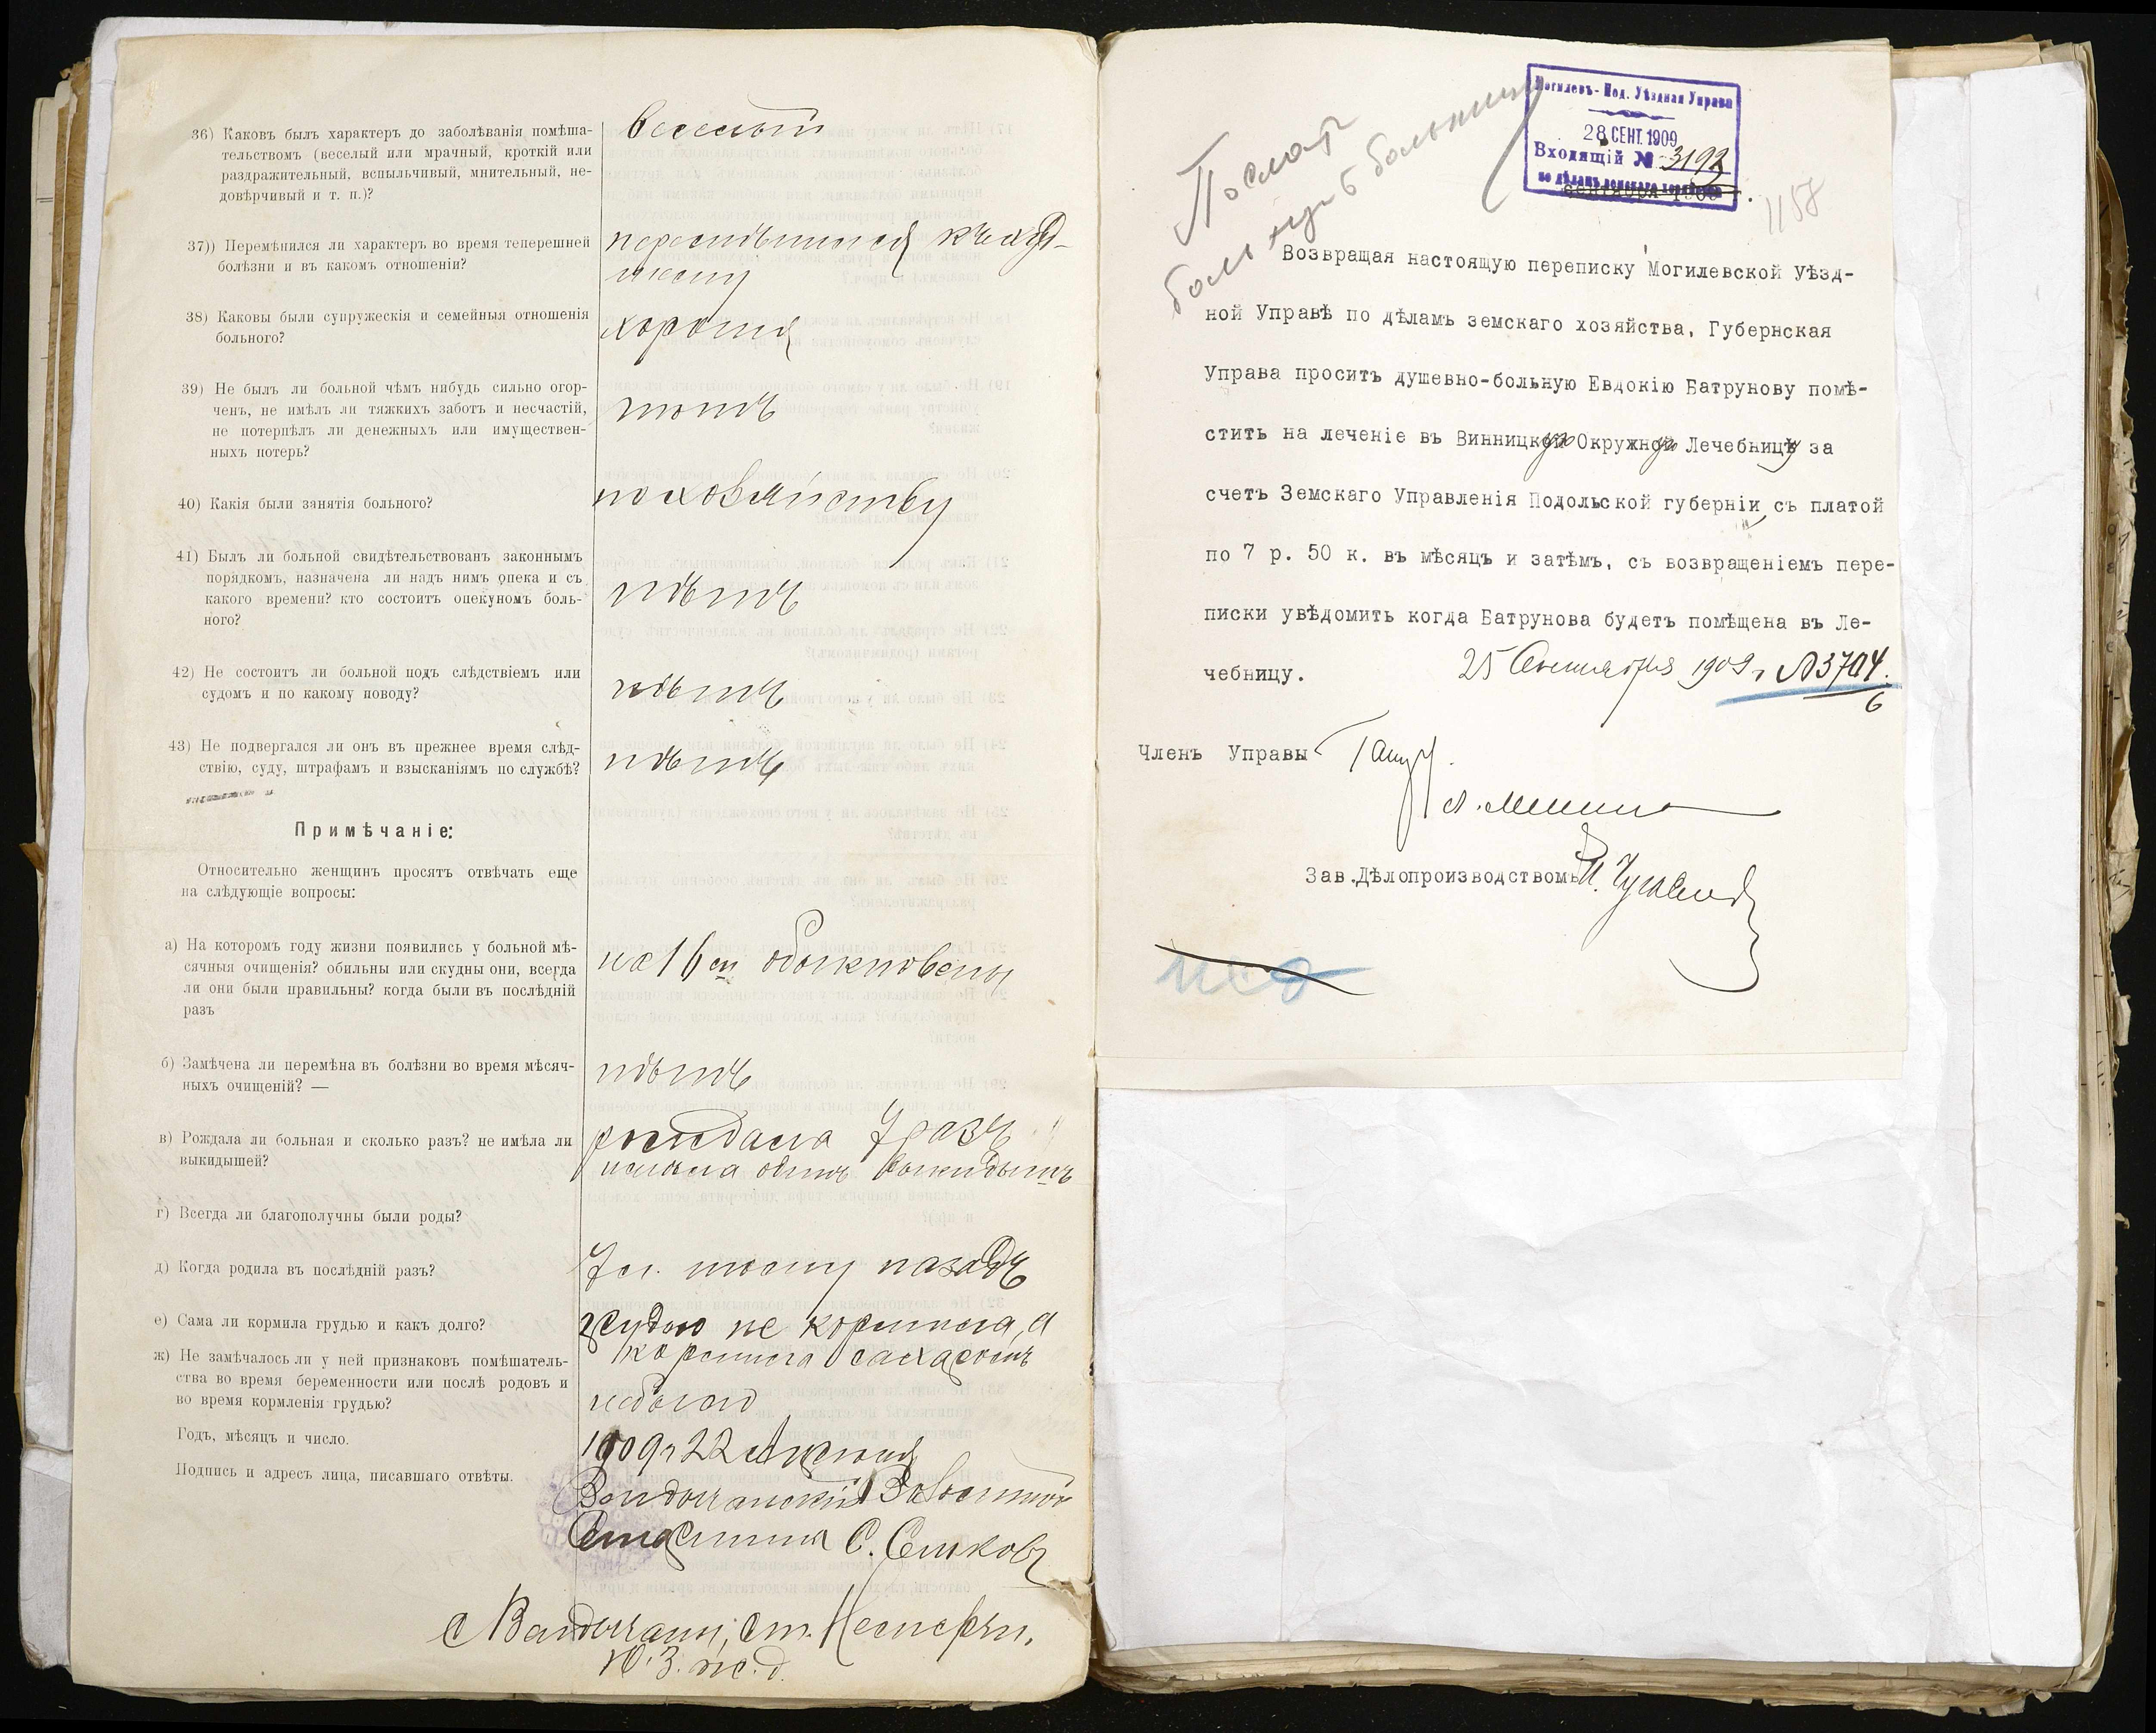 36) Каковъ былъ характеръ до заболѣванія помѣша-
тельствомъ (веселый или мрачный, кроткій или
раздражительный, вспыльчивый, мнительный, не-
довѣрчивый и т. п.)?
веселый
37)) Перемѣнился ли характеръ во время теперешней
болѣзни и въ какомъ отношеніи?
перемѣнился къ худ-
шему
38) Каковы были супружескія и семейныя отношенія
больного?
хорошія
39) Не былъ ли больной чѣмъ нибудь сильно огор-
ченъ, не имѣлъ ли тяжкихъ заботъ и несчастій,
не потерпѣлъ ли денежныхъ или имуществен-
ныхъ потерь?
40) Какія были занятія больного?
по хозяйству
41) Былъ ли больной свидѣтельствованъ законнымъ
порядкомъ, назначена ли надъ нимъ опека и съ
какого времени? кто состоитъ опекуномъ боль-
ного?
нѣтъ
42) Не состоитъ ли больной подъ слѣдствіемъ или
судомъ и по какому поводу?
нѣтъ
43) Не подвергался ли онъ въ прежнее время слѣд-
ствію, суду, штрафамъ и взысканіямъ по службѣ?
нѣтъ
Примѣчаніе:
Относительно женщинъ просятъ отвѣчать еще
на слѣдующіе вопросы:
а) На которомъ году жизни появились у больной мѣ-
сячныя очищенія? обильны или скудны они, всегда
ли они были правильны? когда были въ послѣдній
разъ
на 16 м обыкновены
б) Замѣчена ли перемѣна въ болѣзни во время мѣсяч-
ныхъ очищеній? —
нѣтъ
в) Рождала ли больная и сколько разъ? не имѣла ли
выкидышей?
рождала 7 разъ
имѣла одинъ выкидышъ
г) Всегда ли благополучны были роды?
д) Когда родила въ послѣдній разъ?
7 л. тому назадъ
е) Сама ли кормила грудью и какъ долго?
грудью не кормила, а
кормила сахаромъ
ж) Не замѣчалось ли у ней признаковъ помѣшатель-
ства во время беременности или послѣ родовъ и
во время кормленія грудью?
небыло
Годъ, мѣсяцъ и число.
1909 г 22 Апреля
Подпись и адресъ лица, писавшаго отвѣты.
Вендичанскій Волостной
Старшина С.
с Вендичаны, ст.
Ю. З. ж. д.
Послать
больную в больницу
Могилевъ-Под. Уѣздная Управа
28 СЕНТ. 1909
Входящій № 3193
по дѣламъ земскаго хозяйства
сентября 1909 г.
1158
Возвращая настоящую переписку Могилевской Уѣзд-
ной Управѣ по дѣламъ земскаго хозяйства, Губернская
Управа проситъ душевно-больную Евдокію Батрунову помѣ-
стить на леченіе въ Винницкую Окружную Лечебницу за
счетъ Земскаго Управленія Подольской губерніи съ платой
по 7 р. 50 к. въ мѣсяцъ и затѣмъ, съ возвращеніемъ пере-
писки увѣдомить когда Батрунова будетъ помѣщена въ Ле-
чебницу.
25 Сентября 1909 г № 3704.
6
Членъ Управы
Зав.Дѣлопроизводствомъ